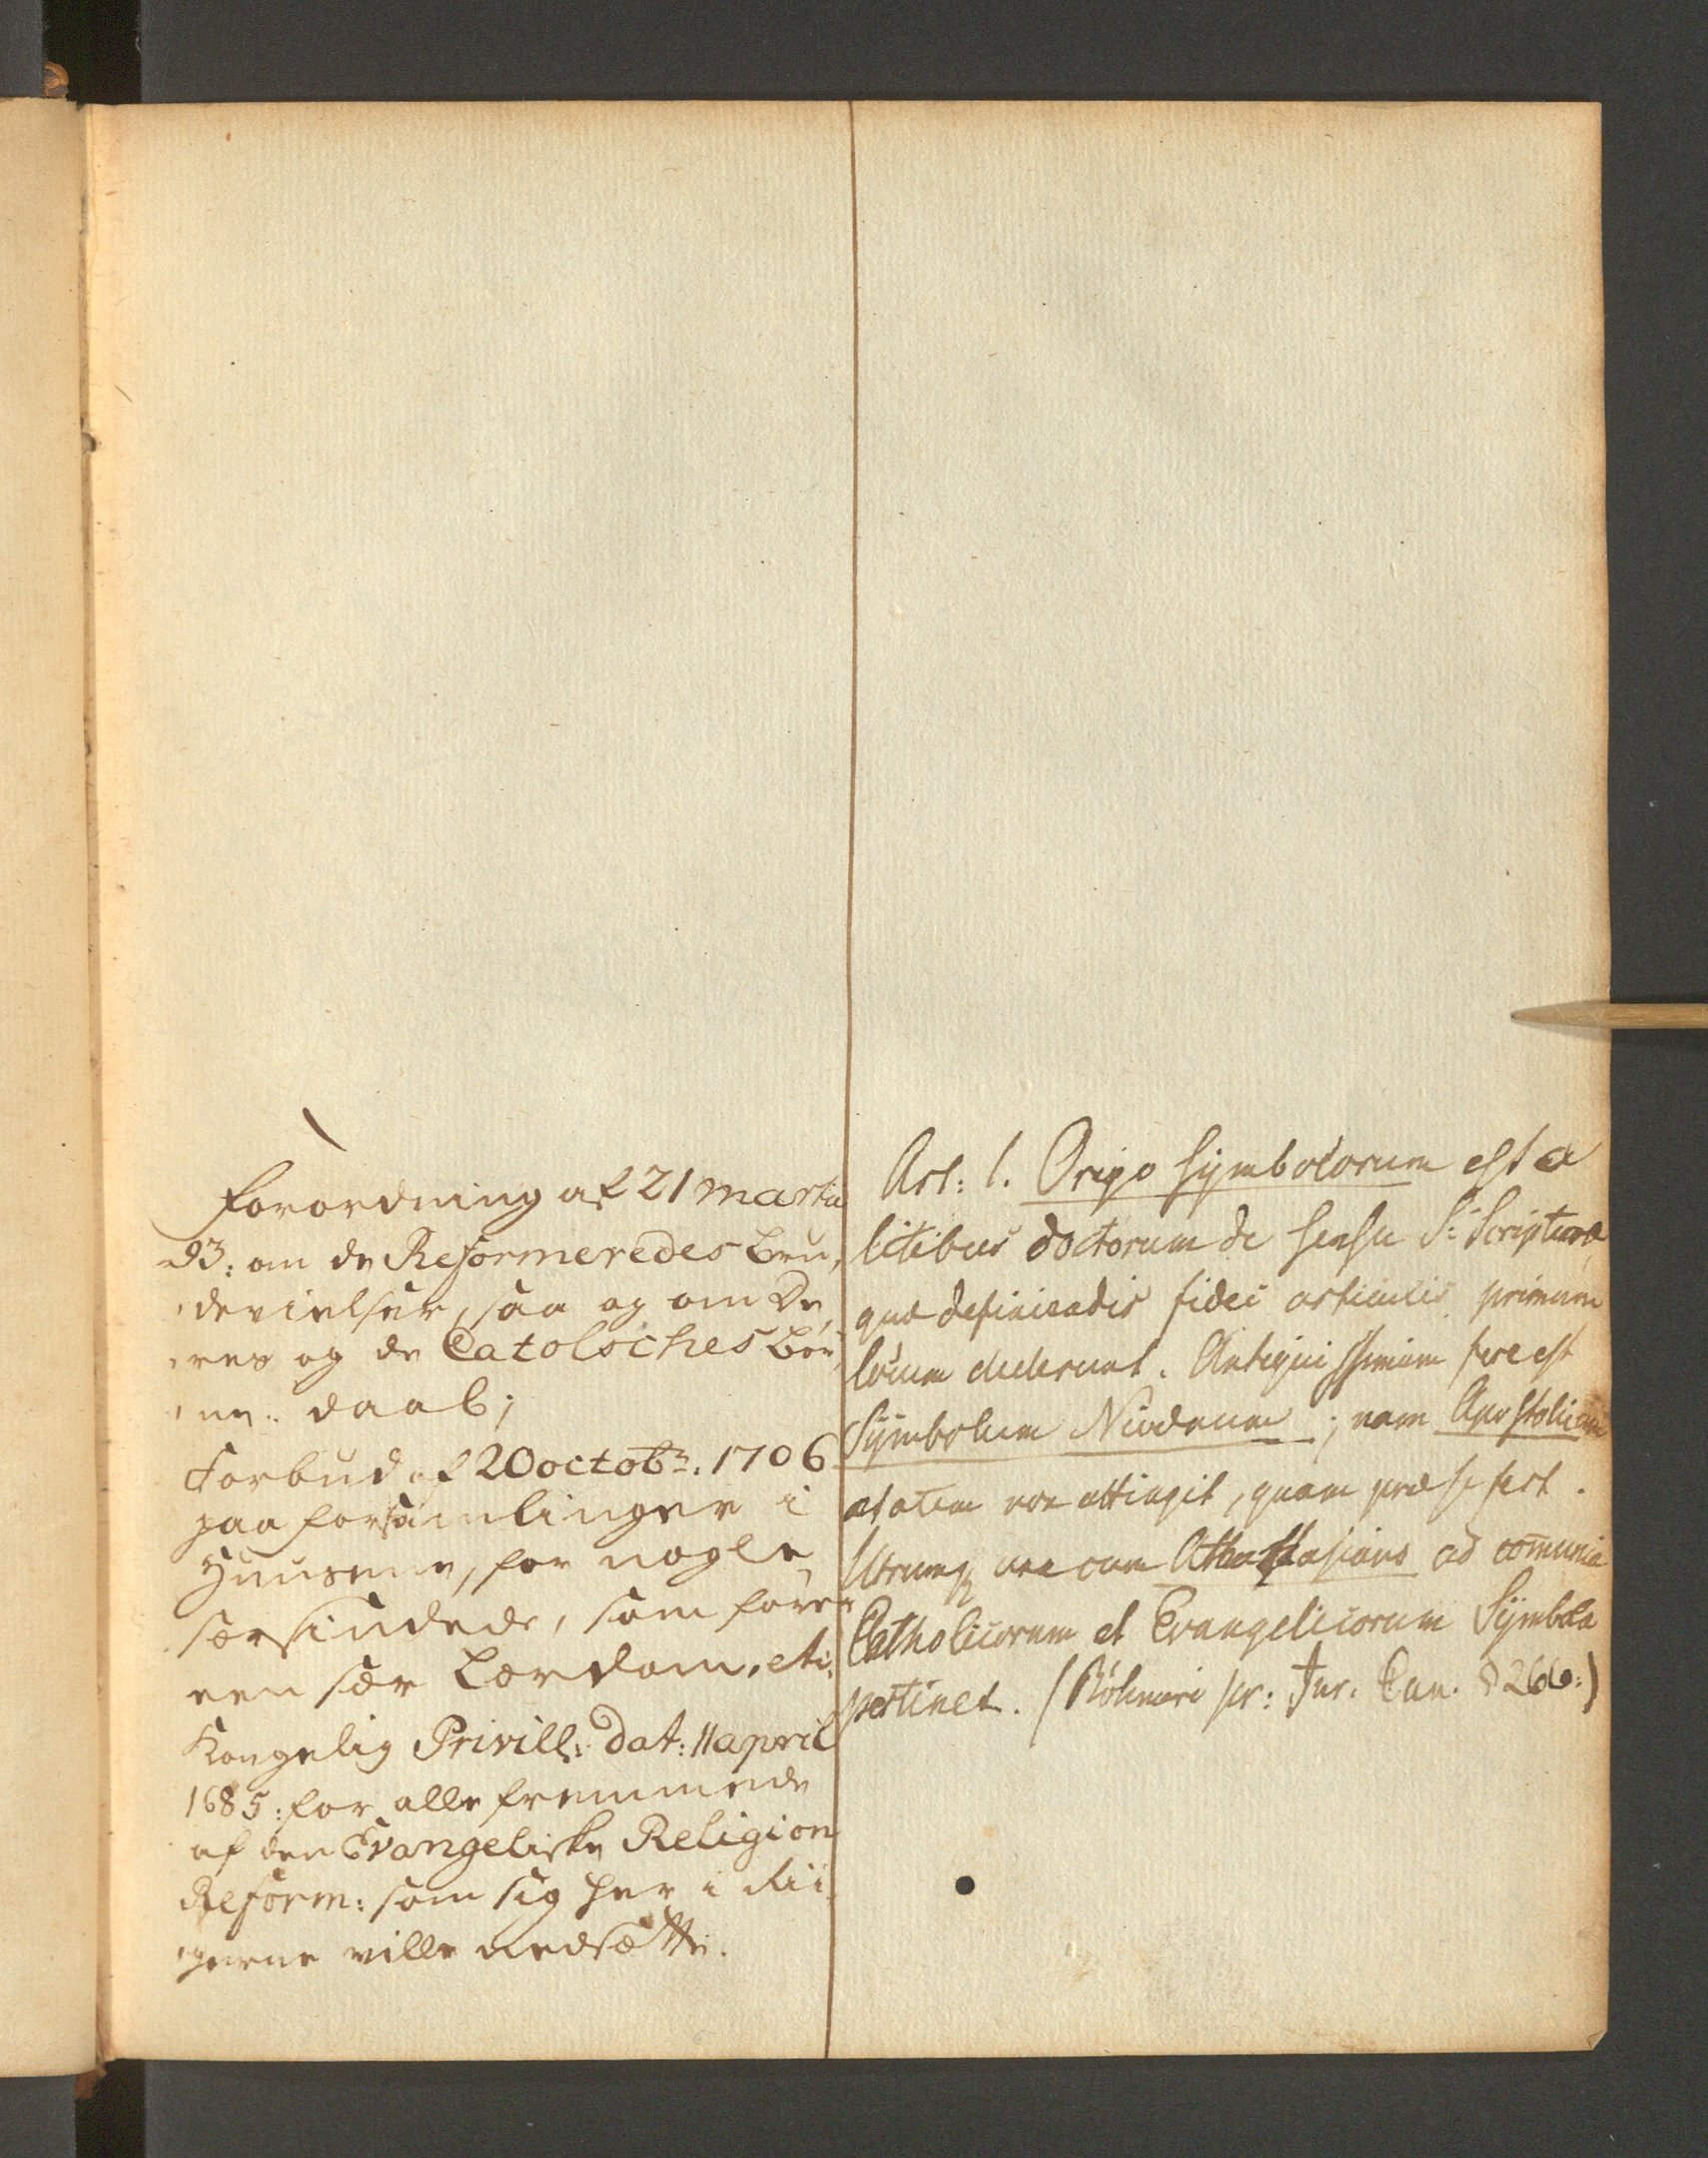 Forordning af 21 Martii
93: om de Reformeredes Bru,
devielser, saa og om De,
res og de Catolsches Bør,
ne: daab;
Forbud af 20 octobr: 1706
paa forsamlinger i
Huusene, for nogle
særsindede, som fører
een sær Lærdom. etc:
Kongelig Privill: Dat: 11 april
1685: for alle fremmede
af den Evangeliske Religion
Reform: som sig her i Rii
gerne ville nedsætte.
Art: 1. Origo symbolorum est a
litibus doctorum de sensu S: Scripturæ
quæ definiendis fidei articulis primum
locum dederunt. Antiquissimum fere est
Symbolum Nicænum; nam Apostolicum
ætatem non attingit, quam præ se fert.
Utrumq una cum Athanasiano ad com̄unia
Catholicorum et Evangelicorum Symbola
pertinet. (Böhmeri pr: Jur. Can. § 266:)